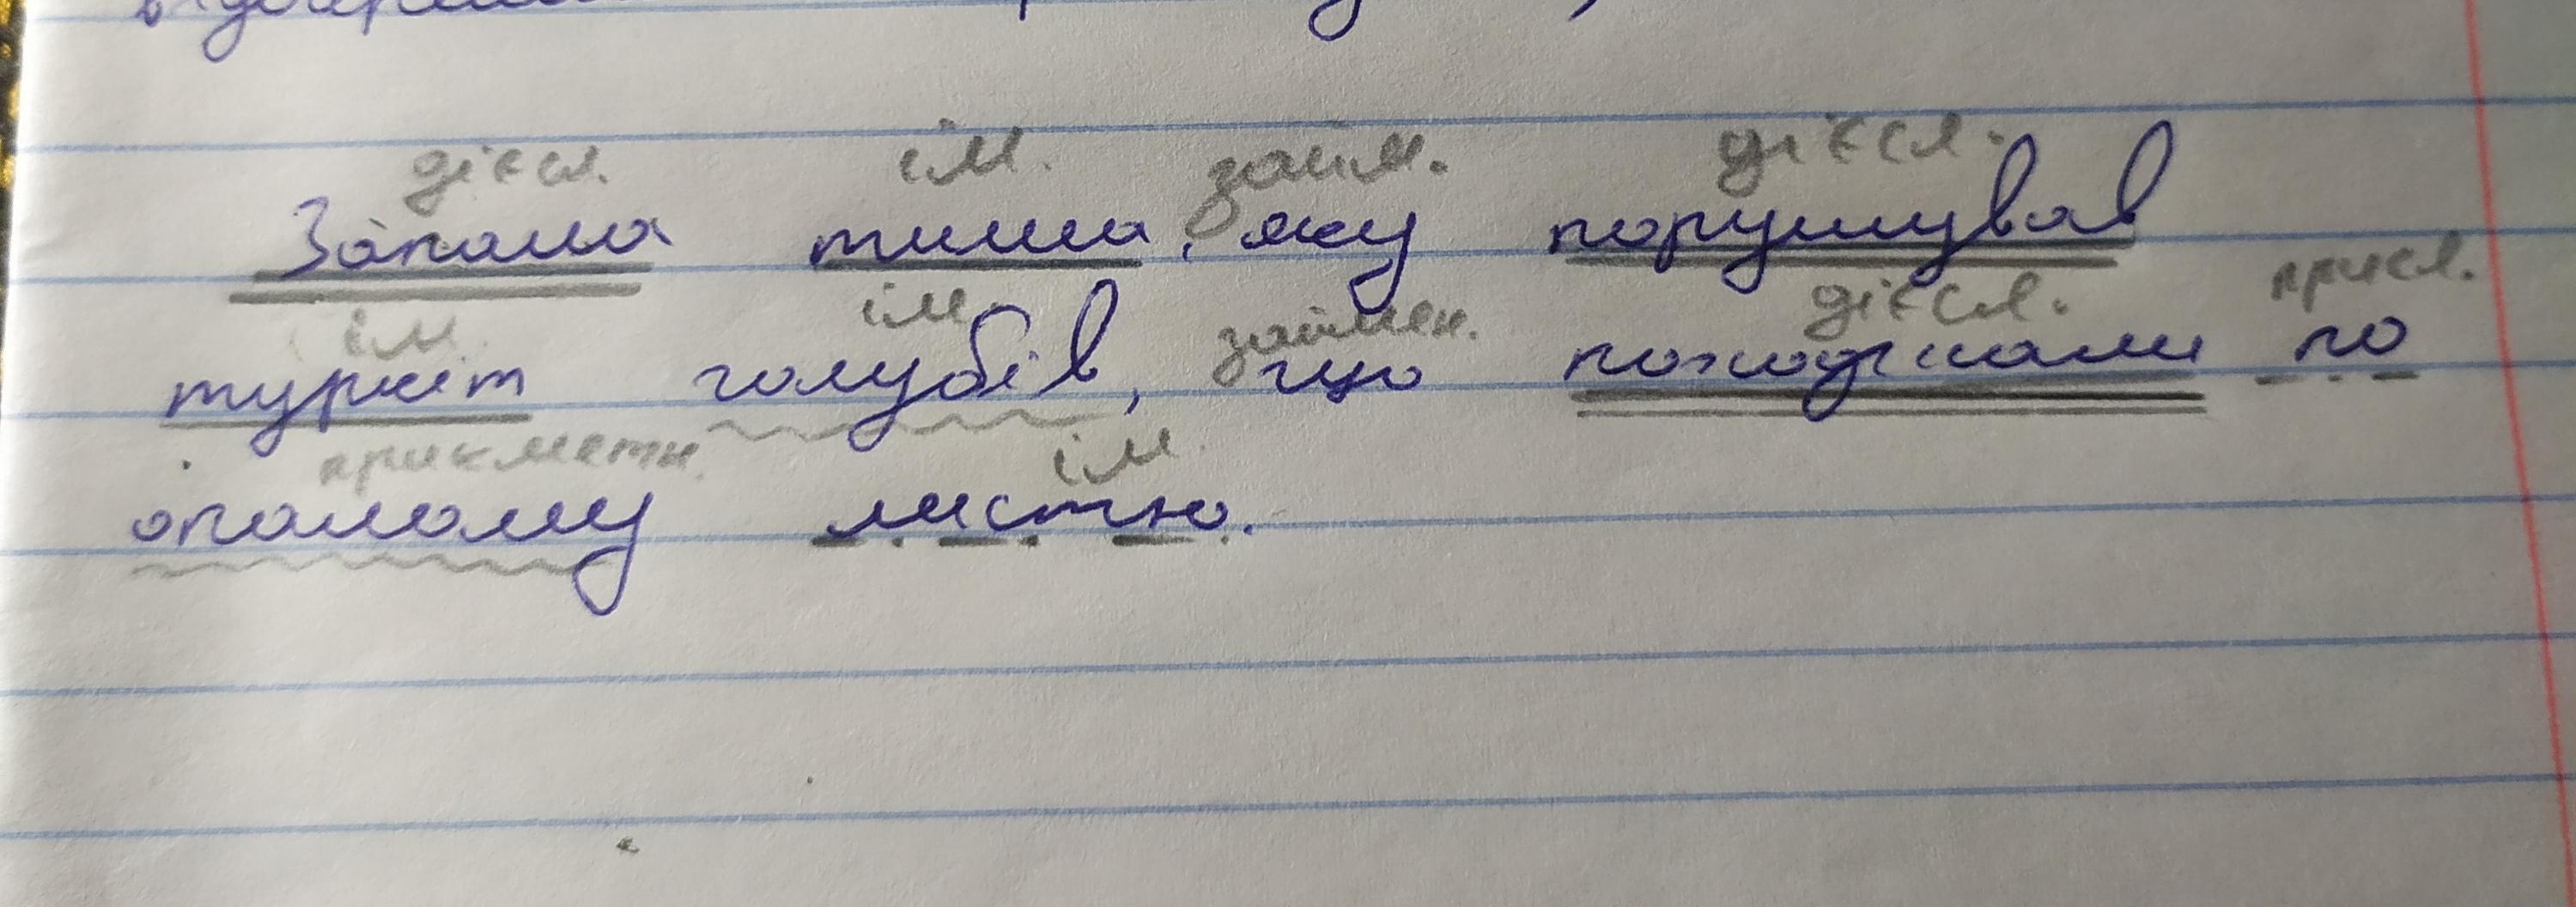 дієсл. ім. займ. дієсл.
Запала тиша, яку порушував
ім. ім. займен. дієсл. присл.
туркіт голубів, що походжали по
прикметн. ім.
опалому листю.